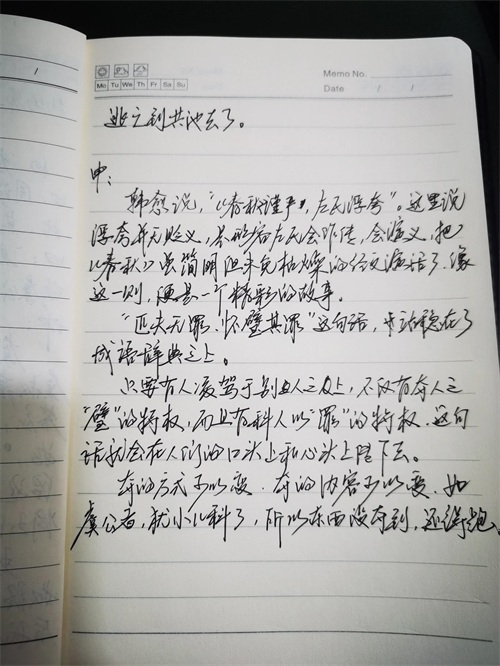 1
Memo No.
Mo Tu We Th Fr Sa Su
Date / /
逃之到共池去了。
申:
韩愈说,“《春秋》谨严,左氏浮夸”。这里说
浮夸并无贬义,是形容左氏会作传,会演义,把
《春秋》虽简明但未免枯燥的经文演活了。像
这一则,便是一个精彩的故事。
“匹夫无罪,怀璧其罪”这句话,牢站稳在了
成语辞典之上。
只要有人凌驾于别人之上,不仅有夺人之
“璧”的特权,而且有科人以“罪”的特权,这句
话就会在人们的口头上和心头上活下去。
夺的方式可以变,夺的内容可以变,如
虞公者,就小儿科了,所以东西没夺到,还得跑